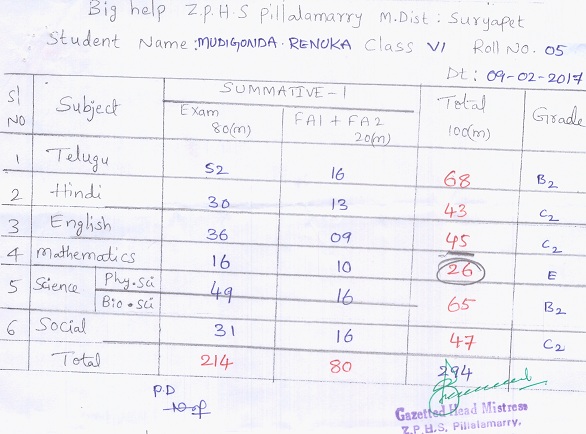 Big help Z.P.H.S pillalamarry M.Dist : Suryapet
Student Name : MUDIGONDA. RENUKA Class VI Roll NO. 05
Dt : 09-02-2017
Sl NO Subject SUMMATIVE - 1 Total 100(m) Grade
Exam 80(m) FA1 + FA2 20(m)
1 Telugu 52 16 68 B2
2 Hindi 30 13 43 C2
3 English 36 09 45 C2
4 mathematics 16 10 26 E
5 Science Phy.sci Bio.sci 49 16 65 B2
6 Social 31 16 47 C2
Total 214 80 294
P.D
Gazetted Head Mistress
Z.P.H.S, Pillalamarry.